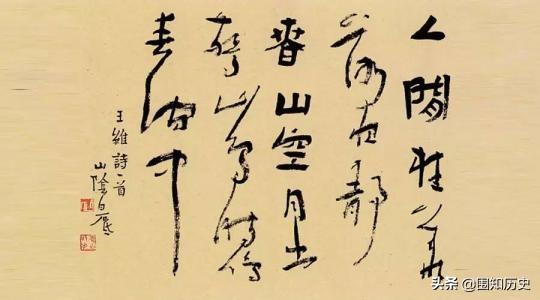 人閒桂花
落夜靜
春山空月出
驚山鳥時鳴
春澗中
王維詩一首
山陰白砥
头条 @围知历史